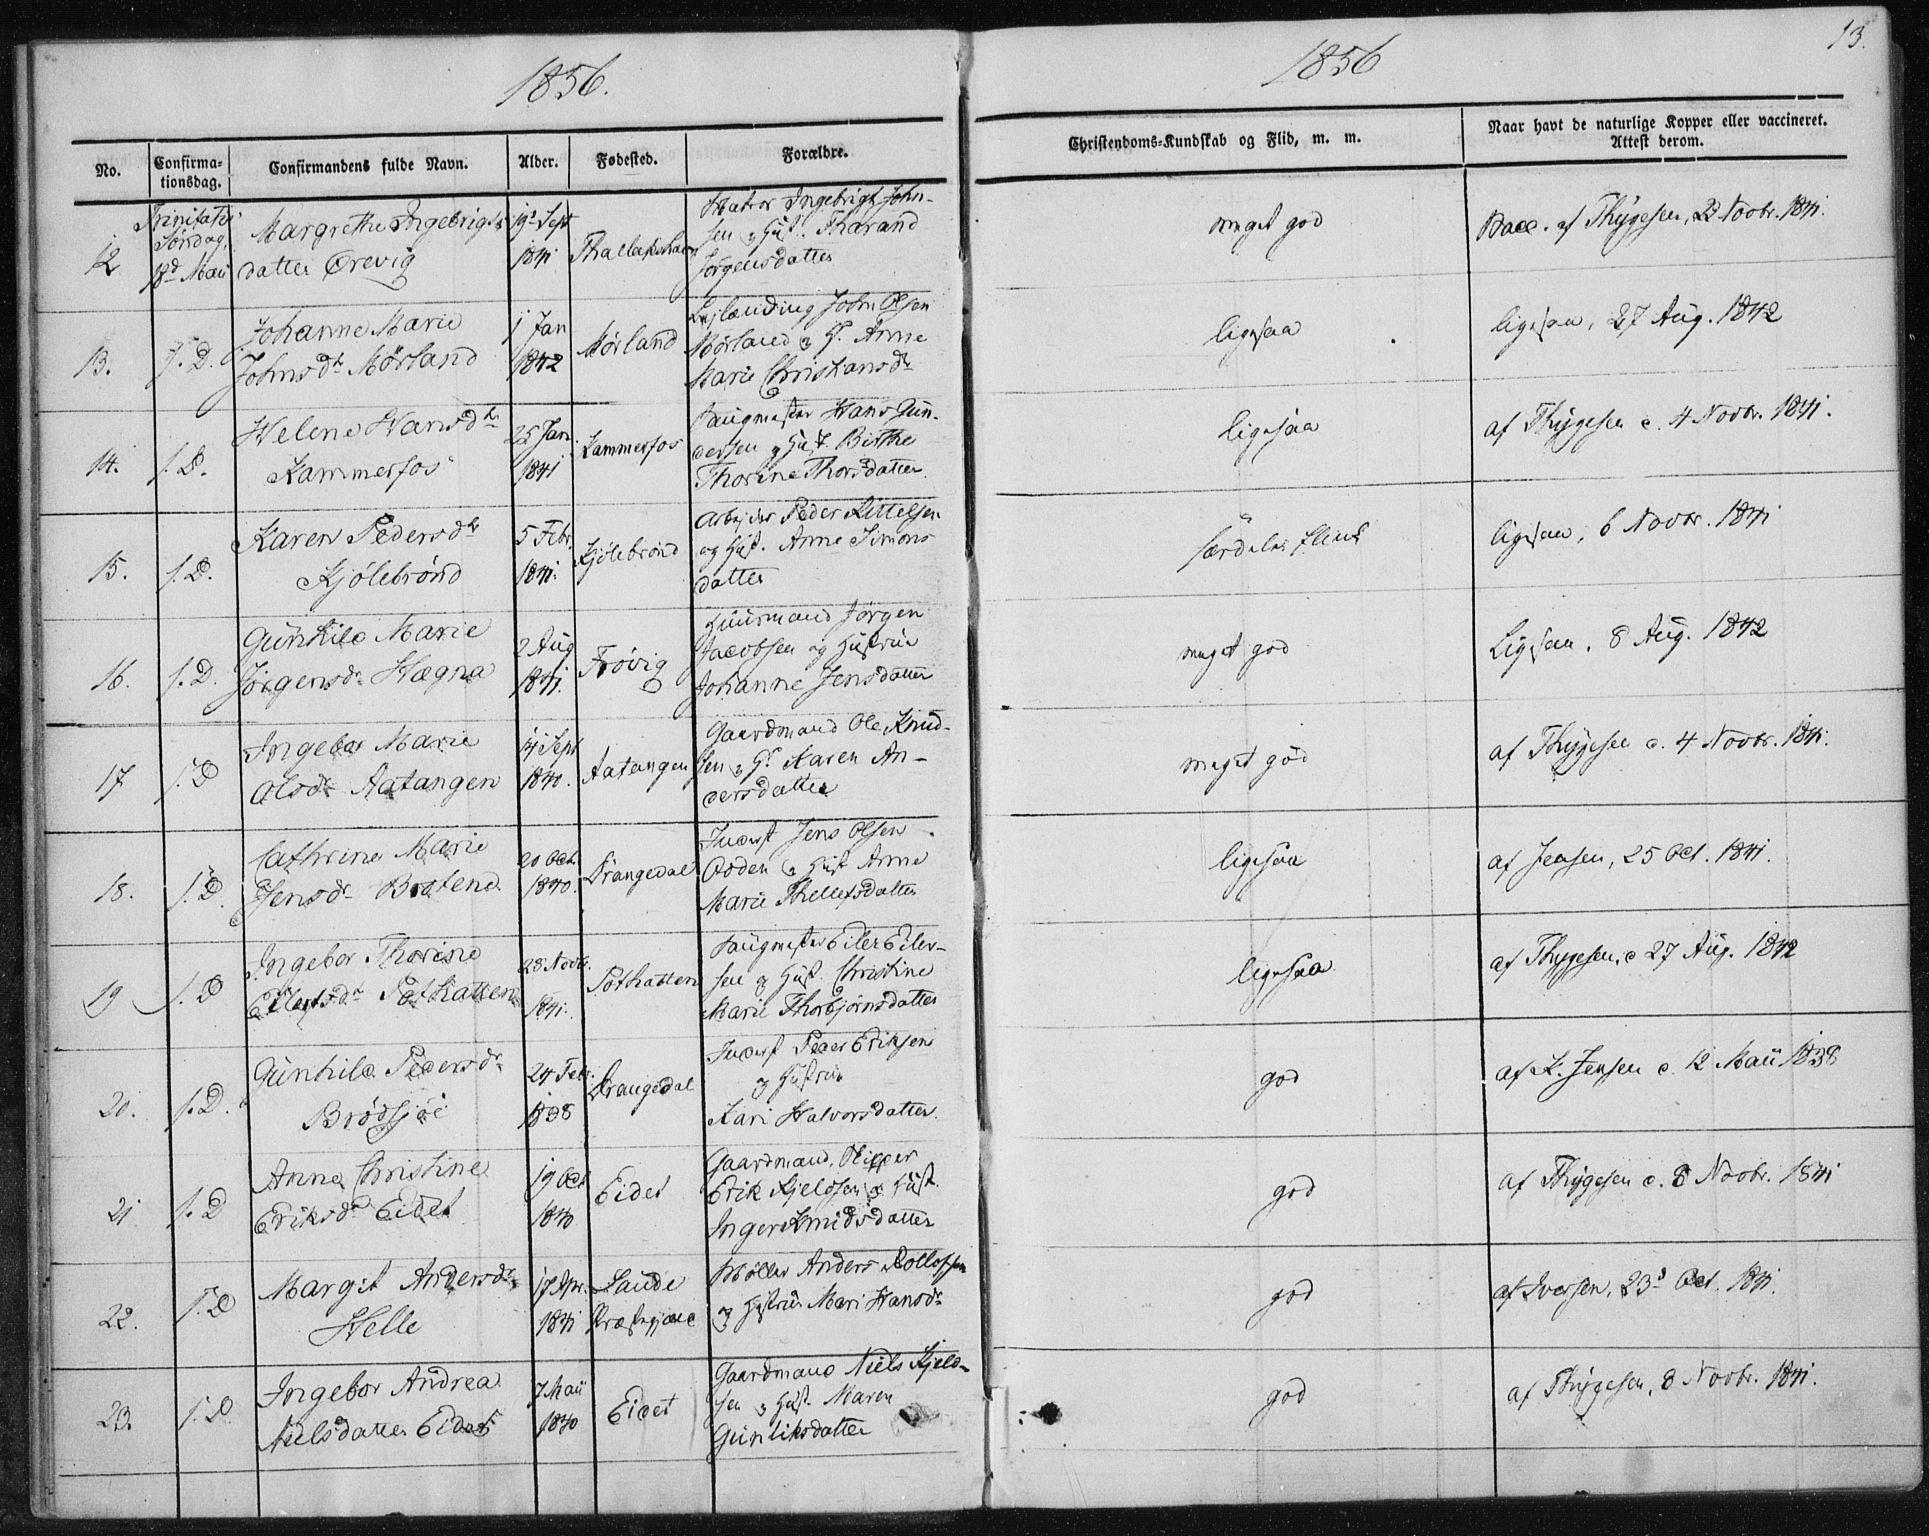 1856.
1856
13.
No.
Confirma-
tionsdag.
Confirmandens fulde Navn.
Alder.
Fødested.
Forældre.
Christendoms-Kundskab og Flid, m. m.
Naar havt de naturlige Kopper eller vaccineret.
Attest derom.
12
Trinitatis
Søndag,
18d Mai
Margrethe Ingebrigts
datter Ørevig
19d Sept
1841
Matros Ingebrigt John-
sen og Hust. Tharand
Jørgensdatter
meget god
Vacc. af Thygesen, 22 Novbr. 1841.
13.
s. D.
Johanne Marie
Johnsdr Mørland
1 Jan
1842
Mørland
Leilænding John Olsen
Mørland og H. Anne
Marie Christiansdr
ligesaa
ligesaa, 27 Aug. 1842
14.
s. D.
Helene Hansdr
Kammerfos
25 Jan.
1841
Kammerfos
Saugmester Hans Gun-
dersen og Hust. Birthe
Thorine Thorsdatter
ligesaa
af Thygesen d. 4 Novbr. 1841.
15.
s. D.
Karen Pedersdr
Kjølebrønd
5 Febr.
1841.
Kjølebrønd
Arbejder Peder Kittelsen
og Hust. Anne Simons
datter
særdeles flink
ligesaa, 6 Novbr. 1841
16.
s. D.
Gunhild Marie
Jørgensdr Hægna
2 Aug
1841.
Frøvig
Huusmand Jørgen
Jacobsen og Hustrue
Johanne Jensdatter
meget god
Ligesaa. 8 Aug. 1842
17
s. D
Ingebor Marie
Olsdr Aatangen
14 Sept
1840.
Aatangen
Gaardmand Ole Knud-
sen og Hr Karen An-
dersdatter
meget god
af Thygesen d. 4 Novbr. 1841.
18.
s. D.
Cathrine Marie
Jensdr Bråtend
20 Oct.
1840.
Drangedal
Inderst Jens Olsen
Odden og Hust Anne
Marie Thellefsdatter
ligesaa
af Jensen, 25 Oct. 1841.
19
s. D
Ingebor Thorine
Eilertsdr Pothatten
28 Novbr.
1841.
Pothatten
Saugmester Eiler Eiler-
sen og Hust. Christine
Marie Thorbjørnsdatter
ligesaa
af Thygesen, d 27 Aug. 1842
20.
s. D.
Gunhild Pedersdr
Brødsjøe
24 Febr.
1838
Drangedal
Inderst Peder Eriksen
og Hustrue
Kari Halvorsdatter.
god
af K. Jensen d. 12 Mai 1838
21
s. D
Anne Christine
Eriksdr Eidet
19 Oct
1840
Eidet
Gaardmand, Skipper
Erik Kjeldsen og Hust.
Inger Knudsdatter
god
af Thygesen d. 8 Novbr. 1841
22.
s. D
Margit Andersdr
Helle
17 Apr.
1841
Saude
Præstegjæld
Møller Anders Rollefsen
og Hustrue Mari Hansdr
god
af Iversen, 23d Oct. 1841.
23.
s. D.
Ingebor Andrea
Nielsdatter Eidet
7 Mai
1840
Eidet
Gaardmand Niels Kjeld-
sen og Hust. Maren
Gunliksdatter
god
af Thygesen, 8 Novbr. 1841.